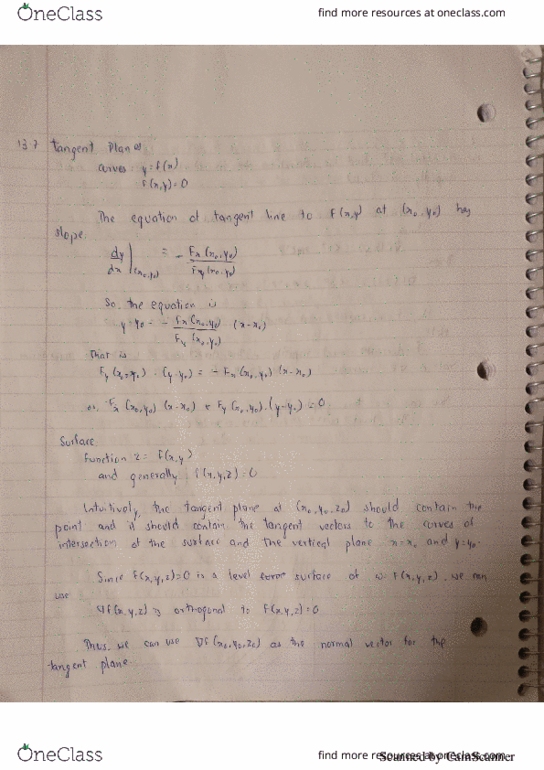 OneClass
find more resources at oneclass.com
13.7 Tangent Planes
curves y=f(x)
F(x,y)=0
The equation of tangent line to F(x,y) at (x₀,y₀) has
slope:
dy/dx |(x₀,y₀) = - Fx(x₀,y₀) / Fy(x₀,y₀)
So, the equation is
y-y₀ = - Fx(x₀,y₀) / Fy(x₀,y₀) · (x-x₀)
That is
Fy(x₀,y₀) · (y-y₀) = - Fx(x₀,y₀)(x-x₀)
or Fx(x₀,y₀)(x-x₀) + Fy(x₀,y₀)·(y-y₀) = 0
Surface
Function z = f(x,y)
and generally F(x,y,z)=0
Intuitively, the tangent plane at (x₀,y₀,z₀) should contain the
point and it should contain the tangent vectors to the curves of
intersection of the surface and the vertical plane x=x₀ and y=y₀.
Since F(x,y,z)=0 is a level surface of w=F(x,y,z), we can
use
∇F(x,y,z) is orthogonal to F(x,y,z)=0
Thus, we can use ∇F(x₀,y₀,z₀) as the normal vector for the
tangent plane
OneClass
find more resources at oneclass.com
Scanned by CamScanner